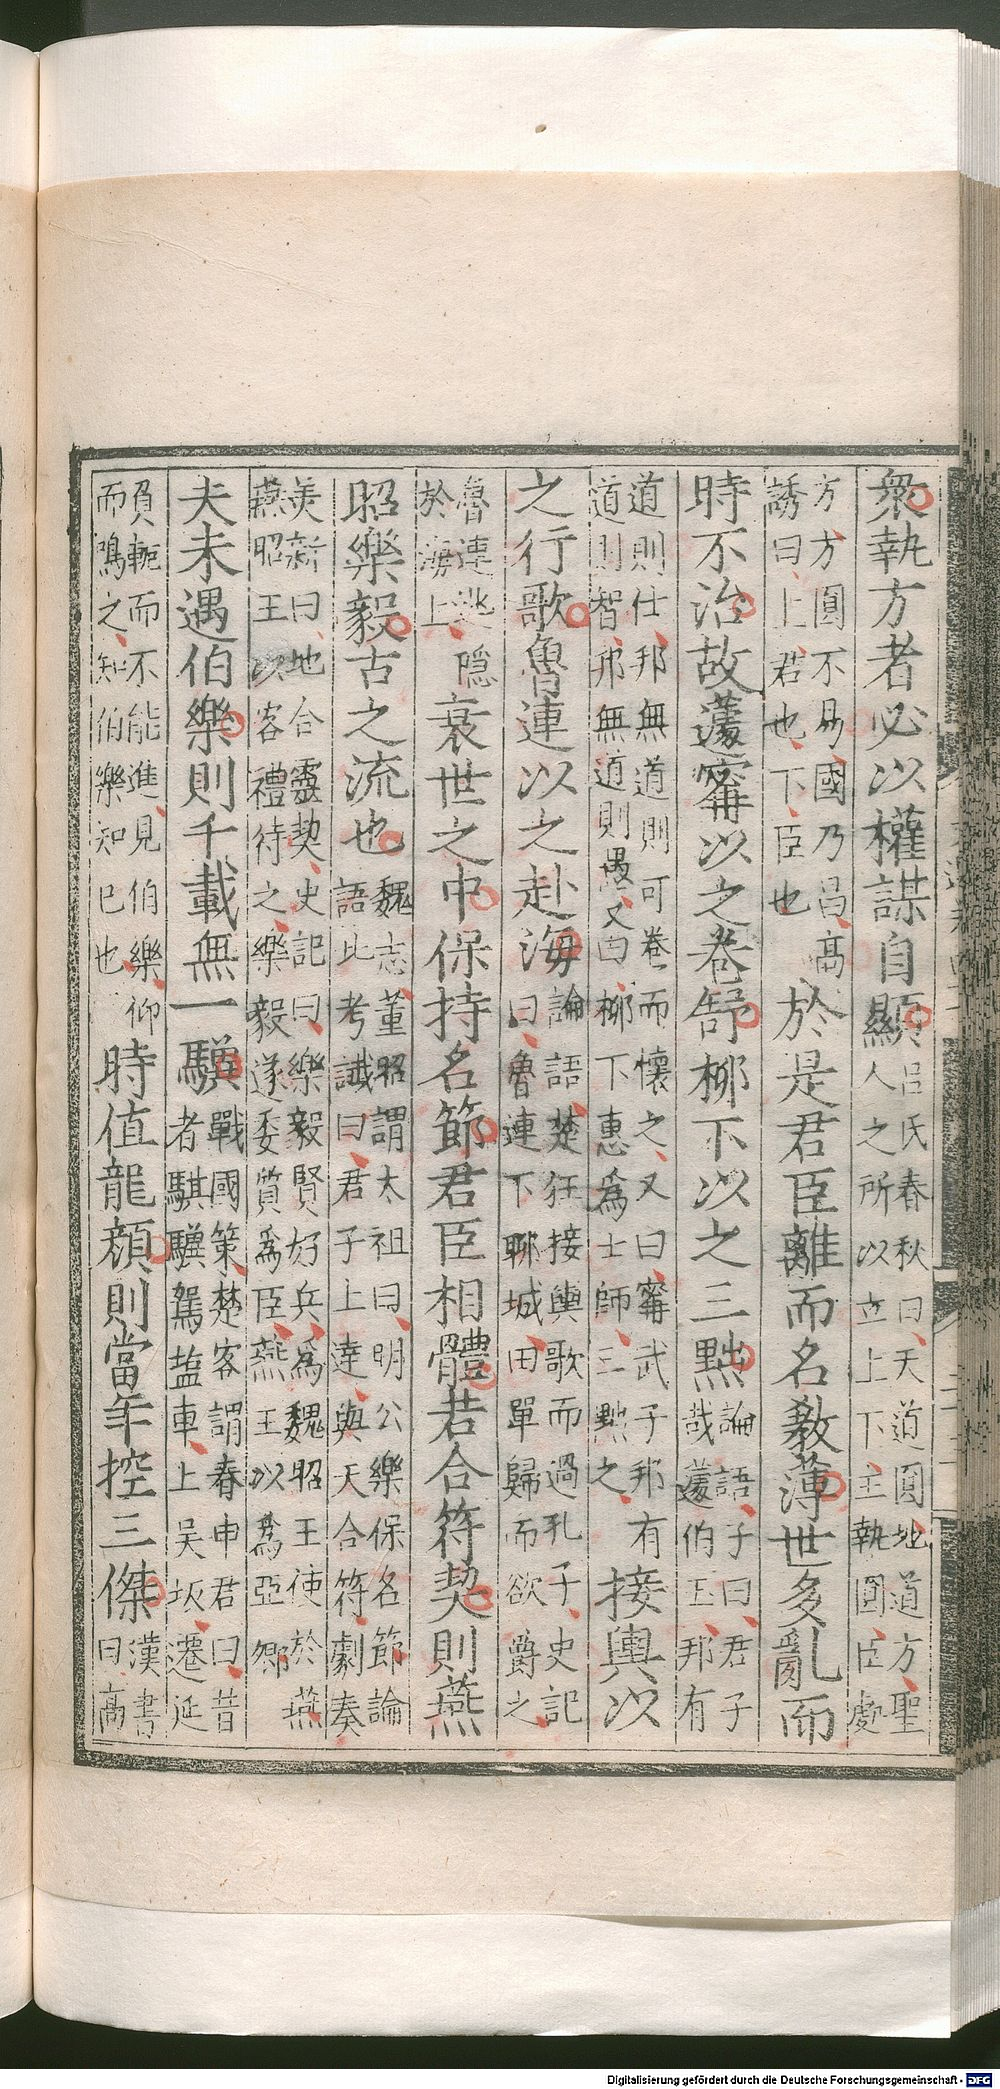 衆執方者必以權謀自顯呂氏春秋曰天道圓地道方聖人之所以立上下主執圓臣處
方方圓不易國乃昌高誘曰上君也下臣也於是君臣離而名教薄世多亂而
時不治故蘧甯以之卷舒柳下以之三黜論語子曰君子哉蘧伯玉邦有
道則仕邦無道則可卷而懷之又曰甯武子邦有道則智邦無道則愚又曰柳下惠爲士師三黜之接輿以
之行歌魯連以之赴海論語楚狂接輿歌而過孔子史記曰魯連下聊城田單歸而欲爵之
魯連逃隱於海上衰世之中保持名節君臣相體若合符契則燕
昭樂毅古之流也魏志董昭謂太祖曰明公樂保名節論語比考讖曰君子上達與天合符劇秦
美新曰地合靈契史記曰樂毅賢好兵爲魏昭王使於燕燕昭王以客禮待之樂毅遂委質爲臣燕王以爲亞卿
夫未遇伯樂則千載無一驥戰國策楚客謂春申君曰昔者騏驥駕塩車上吳坂遷延
負軛而不能進見伯樂仰而鳴之知伯樂知巳也時值龍顏則當年控三傑漢書曰高
Digitalisierung gefördert durch die Deutsche Forschungsgemeinschaft - DFG